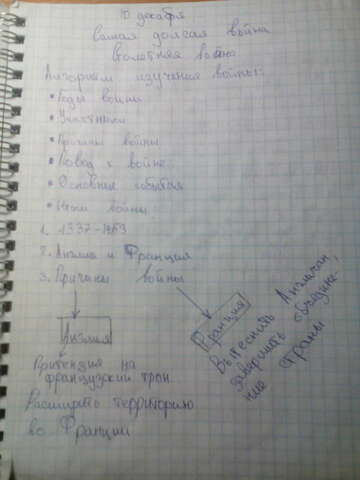 10 декабря
Самая долгая война
Столетняя война
Алгоритм изучения войны:
• Годы войны
• Участники
• Причины войны
• Повод к войне
• Основные события
• Итоги войны
1. 1337-1453
2. Англия и Франция
3. Причины войны
Англия
Притензия на
французский трон
Расширить территорию
во Франции
Франция
Вытеснить Англичан,
завершить объедине-
ние страны